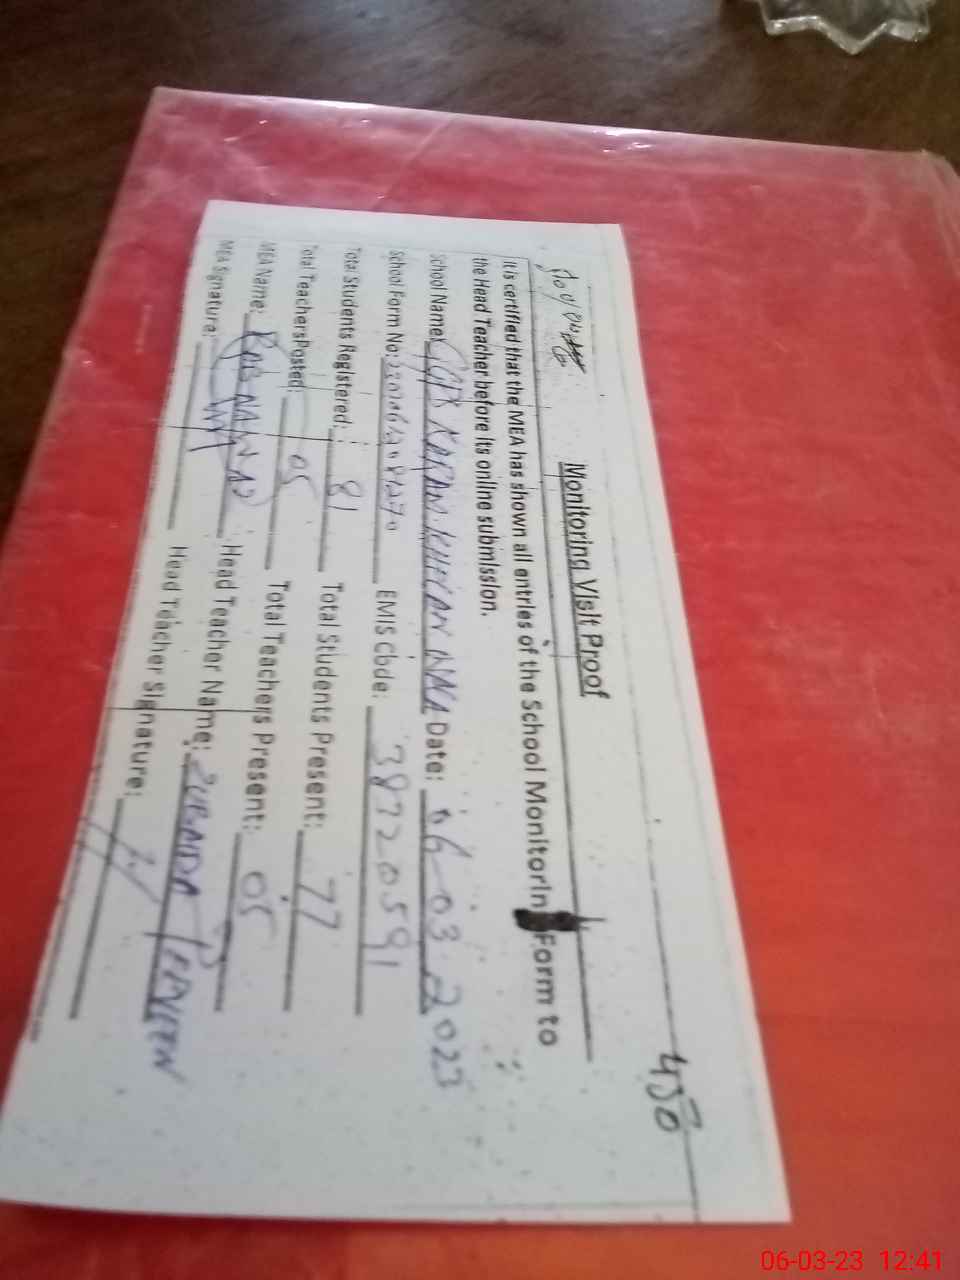 430
Monitoring Visit Proof
It is certified that the MEA has shown all entries of the School Monitorin Form to
the Head Teacher before its online submission.
School Name: KHAN Date: 06-03-2023
School Form No: EMIS Code: 38720591
Total Students Registered: 81 Total Students Present: 77
Total Teachers Posted: 05 Total Teachers Present: 05
MEA Name: NAWAZ Head Teacher Name:
MEA Signature: Head Teacher Signature:
06-03-23 12:41